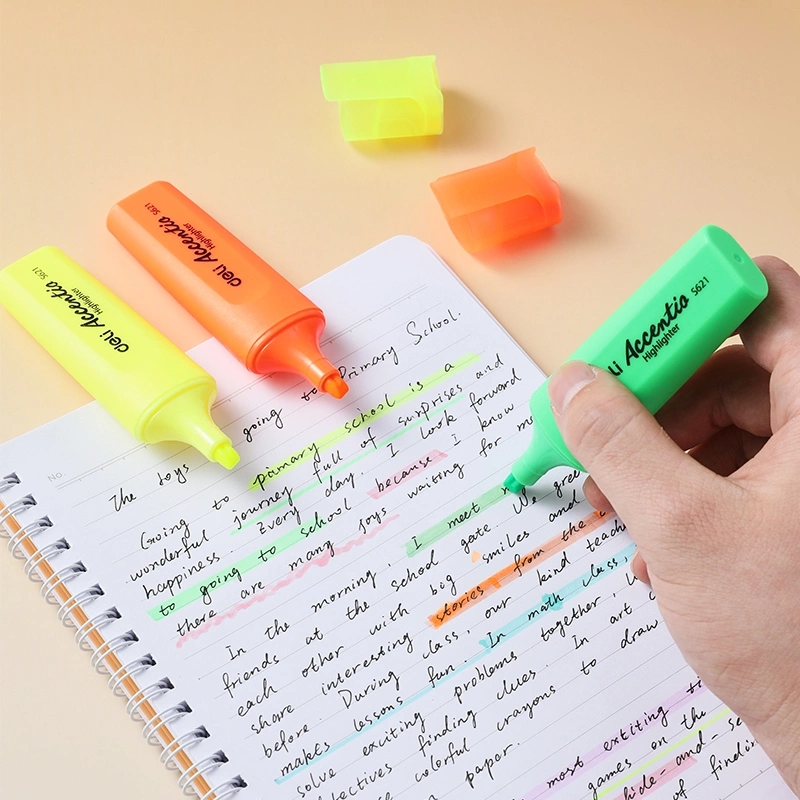 deli Accentio
Highlighter
S621
deli Accentio
Highlighter
S621
li Accentio S621
Highlighter
No.
The joys going to Primary School.
Going to primary school is a
wonderful journey full of surprises and
happiness. Every day. I look forward
to going to school because I know
there are many joys waiting for m
In the morning, I meet
friends at the school gate. We gree
each other with big smiles and
share interesting stories from the
before. During class, our kind teach
makes lessons fun. In math class,
solve exciting problems together,
detectives finding clues. In art c
colorful crayons to draw
paper.
most extiting ti
games on the
hide-and-se
of findin